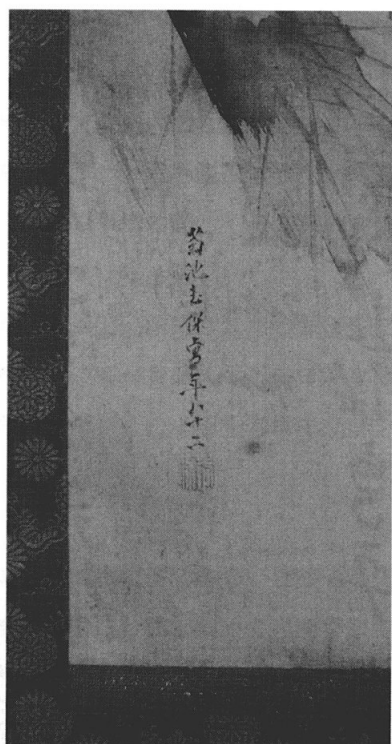 菊池武保寫年八十二